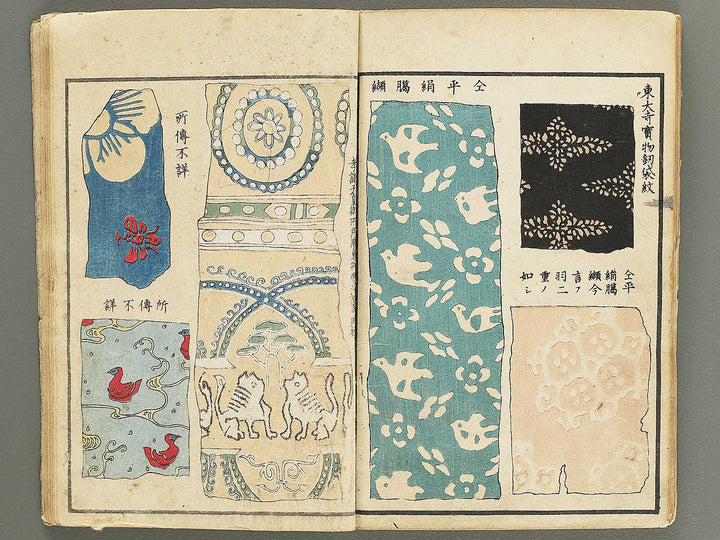 東大寺寳物釼袋紋
仝平絹﨟纈
仝平
絹﨟
纈今
言フ
羽二
重ノ
如シ
所傳不詳
所傳不詳